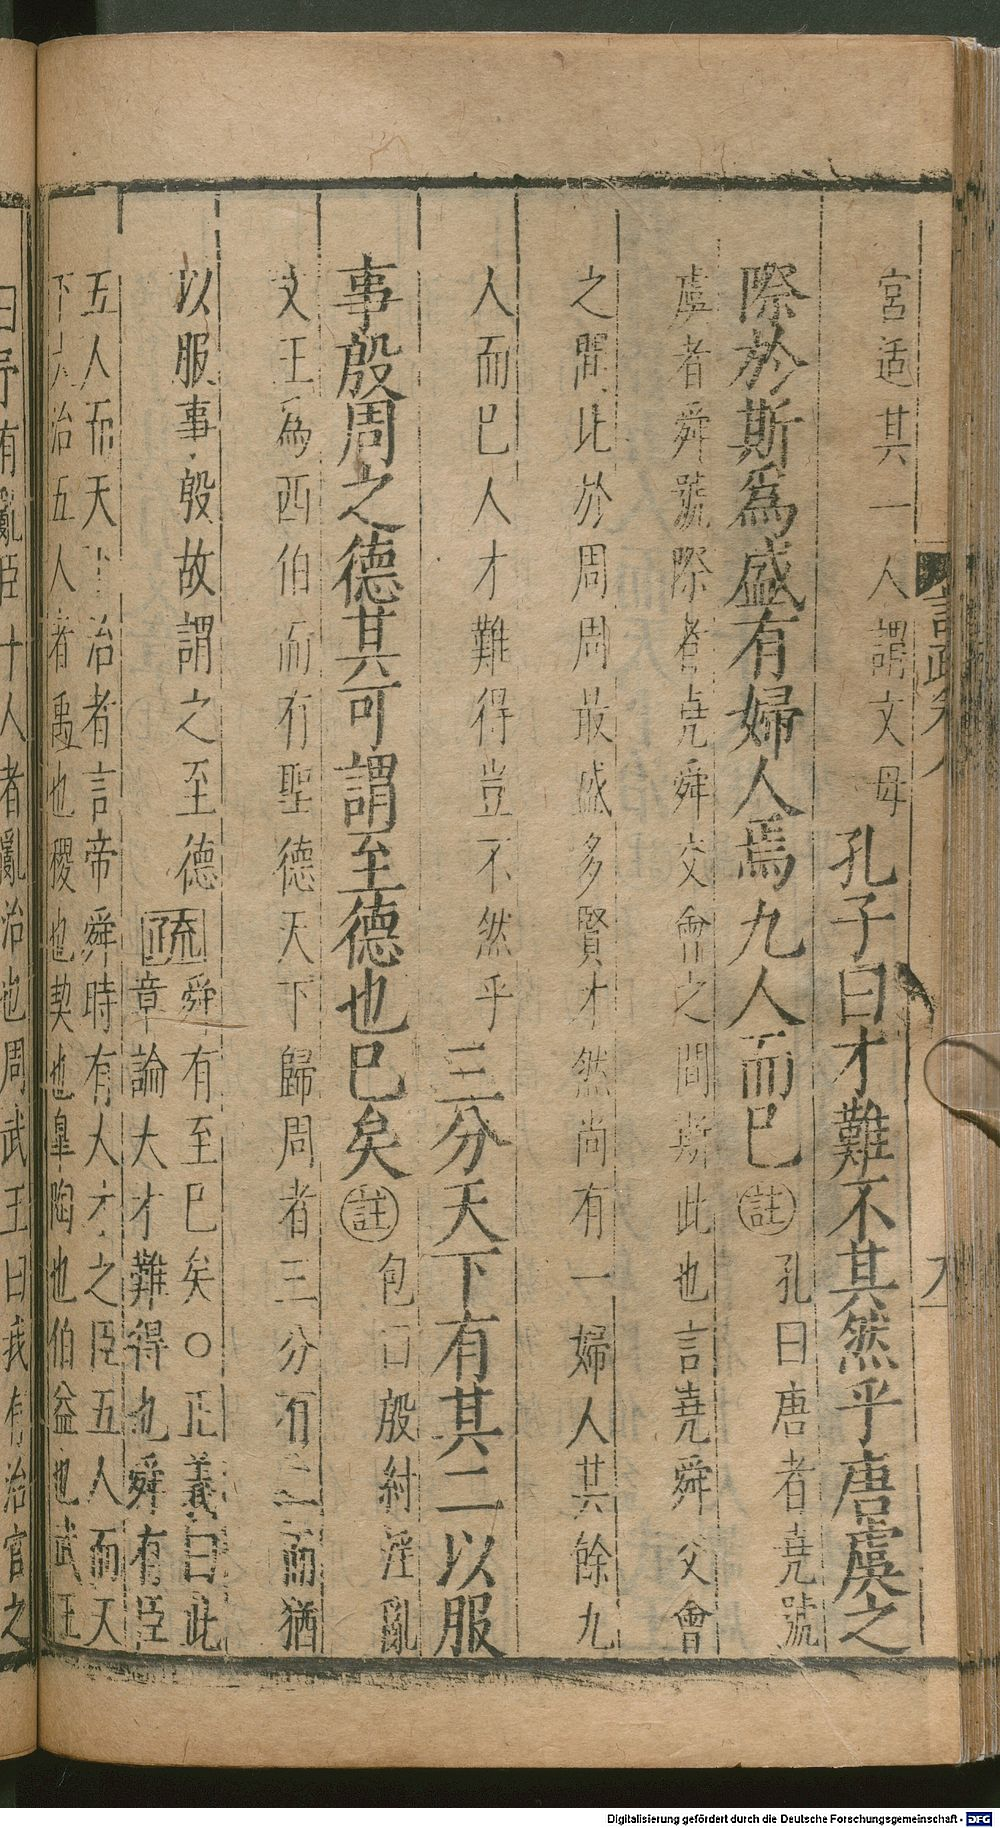 宮适其一人謂文母孔子曰才難不其然乎唐虞之
際於斯爲盛有婦人焉九人而已註孔曰唐者堯號
虞者舜號際者堯舜交會之間斯此也言堯舜交會
之間比於周周最盛多賢才然尚有一婦人其餘九
人而已人才難得豈不然乎三分天下有其二以服
事殷周之德其可謂至德也已矣註包曰殷紂淫亂
文王為西伯而有聖德天下歸周者三分有二而猶
以服事殷故謂之至德疏舜有至已矣○正義曰此
章論大才難得也舜有臣
五人而天下治者言帝舜時有大才之臣五人而天
下大治五人者禹也稷也契也皐陶也伯益也武王
曰予有亂臣十人者亂治也周武王曰我有治官之
Digitalisierung gefördert durch die Deutsche Forschungsgemeinschaft - DFG